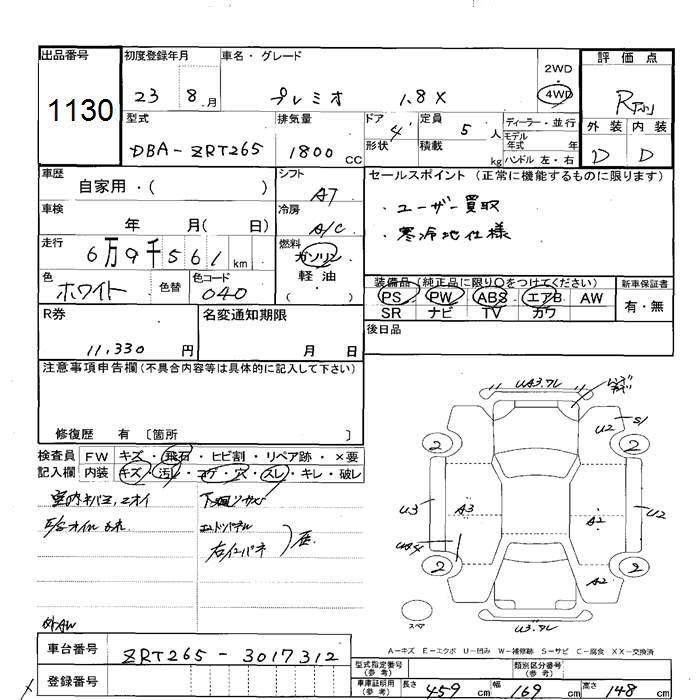 出品番号 初度登録年月 車名・グレード 2WD 評価点
1130 23 8.月 プレミオ 1.8X 4WD R
型式 排気量 ドア 4 定員 5 人 ディーラー・並行 外装 内装
DBA-ZRT265 1800 CC 形状 積載 kg モデル年式 年 D D
ハンドル 左・右
車歴 自家用・( ) シフト AT セールスポイント (正常に機能するものに限ります)
車検 年 月( 日) 冷房 A/C ・ユーザー買取
走行 6万9千561 km 燃料 ガソリン ・寒冷地仕様
軽油
( )
色 ホワイト 色替 色コード 040 装備品(純正品に限り○をつけてください) 新車保証書
PS PW ABS エアB AW 有・無
SR ナビ TV カワ
R券 11,330 円 名変通知期限 月 日 後日品
注意事項申告欄(不具合内容等は具体的に記入して下さい)
修復歴 有 〔箇所 〕
検査員 FW キズ・飛石・ヒビ割・リペア跡・×要
記入欄 内装 キズ・汚レ・コゲ・穴・スレ・キレ・破レ
室内キバミ、ニオイ 下廻りサビ
エンドパネル
外AW
S1
U2
2 2
U3 A3 A2 U2
2 2
A2
スペア
A-キズ E-エクボ U-凹み W-補修跡 S-サビ C-腐食 XX-交換済
車台番号 ZRT265-3017312
登録番号
型式指定番号(参考) 類別区分番号(参考)
車庫証明用(参考) 長さ 459 cm 幅 169 cm 高さ 148 cm